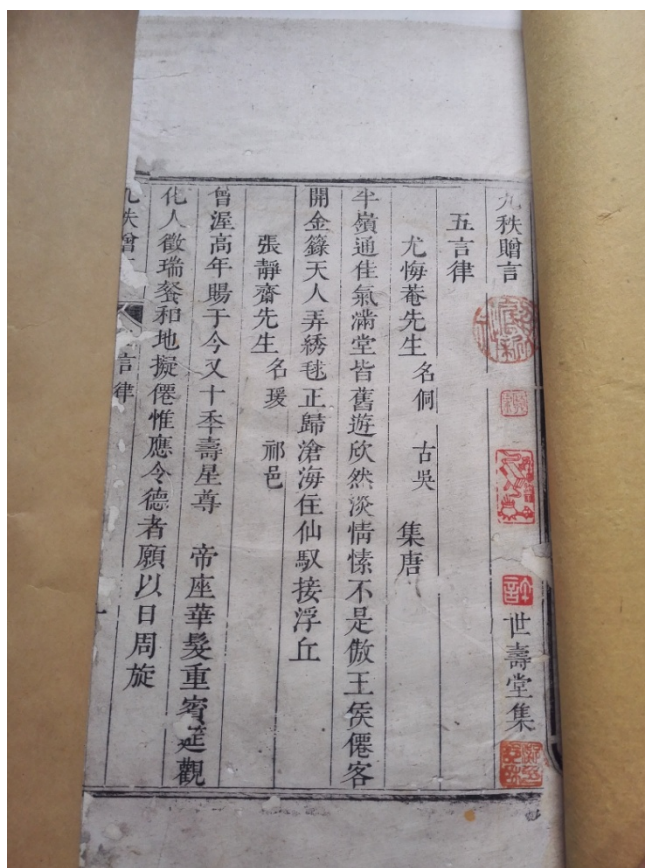 九秩贈言 世壽堂集
五言律
尤悔菴先生 名侗 古吳 集唐
半嶺通佳氣滿堂皆舊遊欣然淡情愫不是傲王侯僊客
開金籙天人弄綉毬正歸滄海住仙馭接浮丘
張靜齋先生 名瑗 祁邑
曾渥高年賜于今又十秊壽星尊 帝座華髮重賓筵觀
化人徵瑞餐和地擬僊惟應令德者願以日周旋
九秩曾
言律